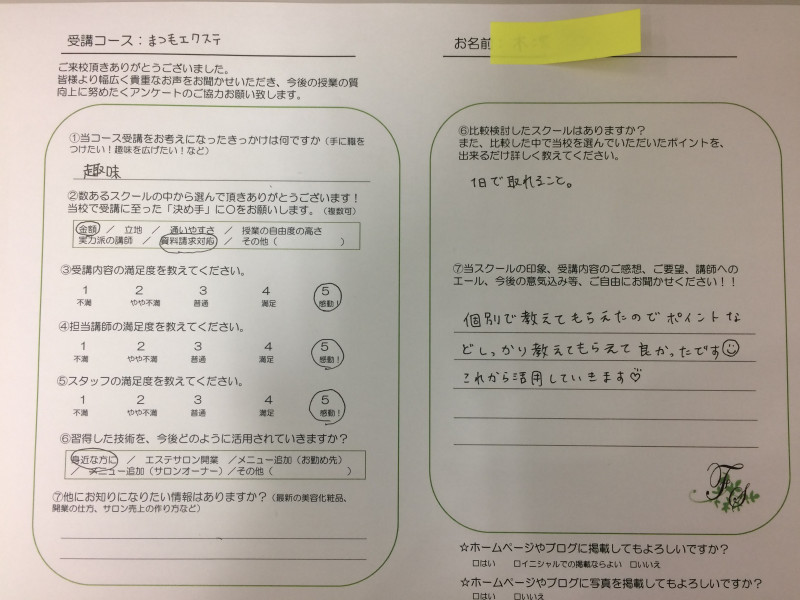 受講コース：まつもエクステ
ご来校頂きありがとうございました。
皆様より幅広く貴重なお声をお聞かせいただき、今後の授業の質
向上に努めたくアンケートのご協力お願い致します。
①当コース受講をお考えになったきっかけは何ですか（手に職を
つけたい！趣味を広げたい！など）
趣味
②数あるスクールの中から選んで頂きありがとうございます！
当校で受講に至った「決め手」に〇をお願いします。（複数可）
金額 ／ 立地 ／ 通いやすさ ／ 授業の自由度の高さ
実力派の講師 ／ 資料請求対応 ／ その他（ ）
③受講内容の満足度を教えてください。
1 2 3 4 5
不満 やや不満 普通 満足 感動！
④担当講師の満足度を教えてください。
1 2 3 4 5
不満 やや不満 普通 満足 感動！
⑤スタッフの満足度を教えてください。
1 2 3 4 5
不満 やや不満 普通 満足 感動！
⑥習得した技術を、今後どのように活用されていきますか？
身近な方に ／ エステサロン開業 ／メニュー追加（お勤め先）
／ メニュー追加（サロンオーナー）／その他（ ）
⑦他にお知りになりたい情報はありますか？（最新の美容化粧品、
開業の仕方、サロン売上の作り方など）
お名前：
⑥比較検討したスクールはありますか？
また、比較した中で当校を選んでいただいたポイントを、
出来るだけ詳しく教えてください。
1日で取れること。
⑦当スクールの印象、受講内容のご感想、ご要望、講師への
エール、今後の意気込み等、ご自由にお聞かせください！！
個別で教えてもらえたのでポイントな
どしっかり教えてもらえて良かったです☺
これから活用していきます♡
☆ホームページやブログに掲載してもよろしいですか？
□はい □イニシャルでの掲載ならよい □いいえ
☆ホームページやブログに写真を掲載してもよろしいですか？
□はい □いいえ